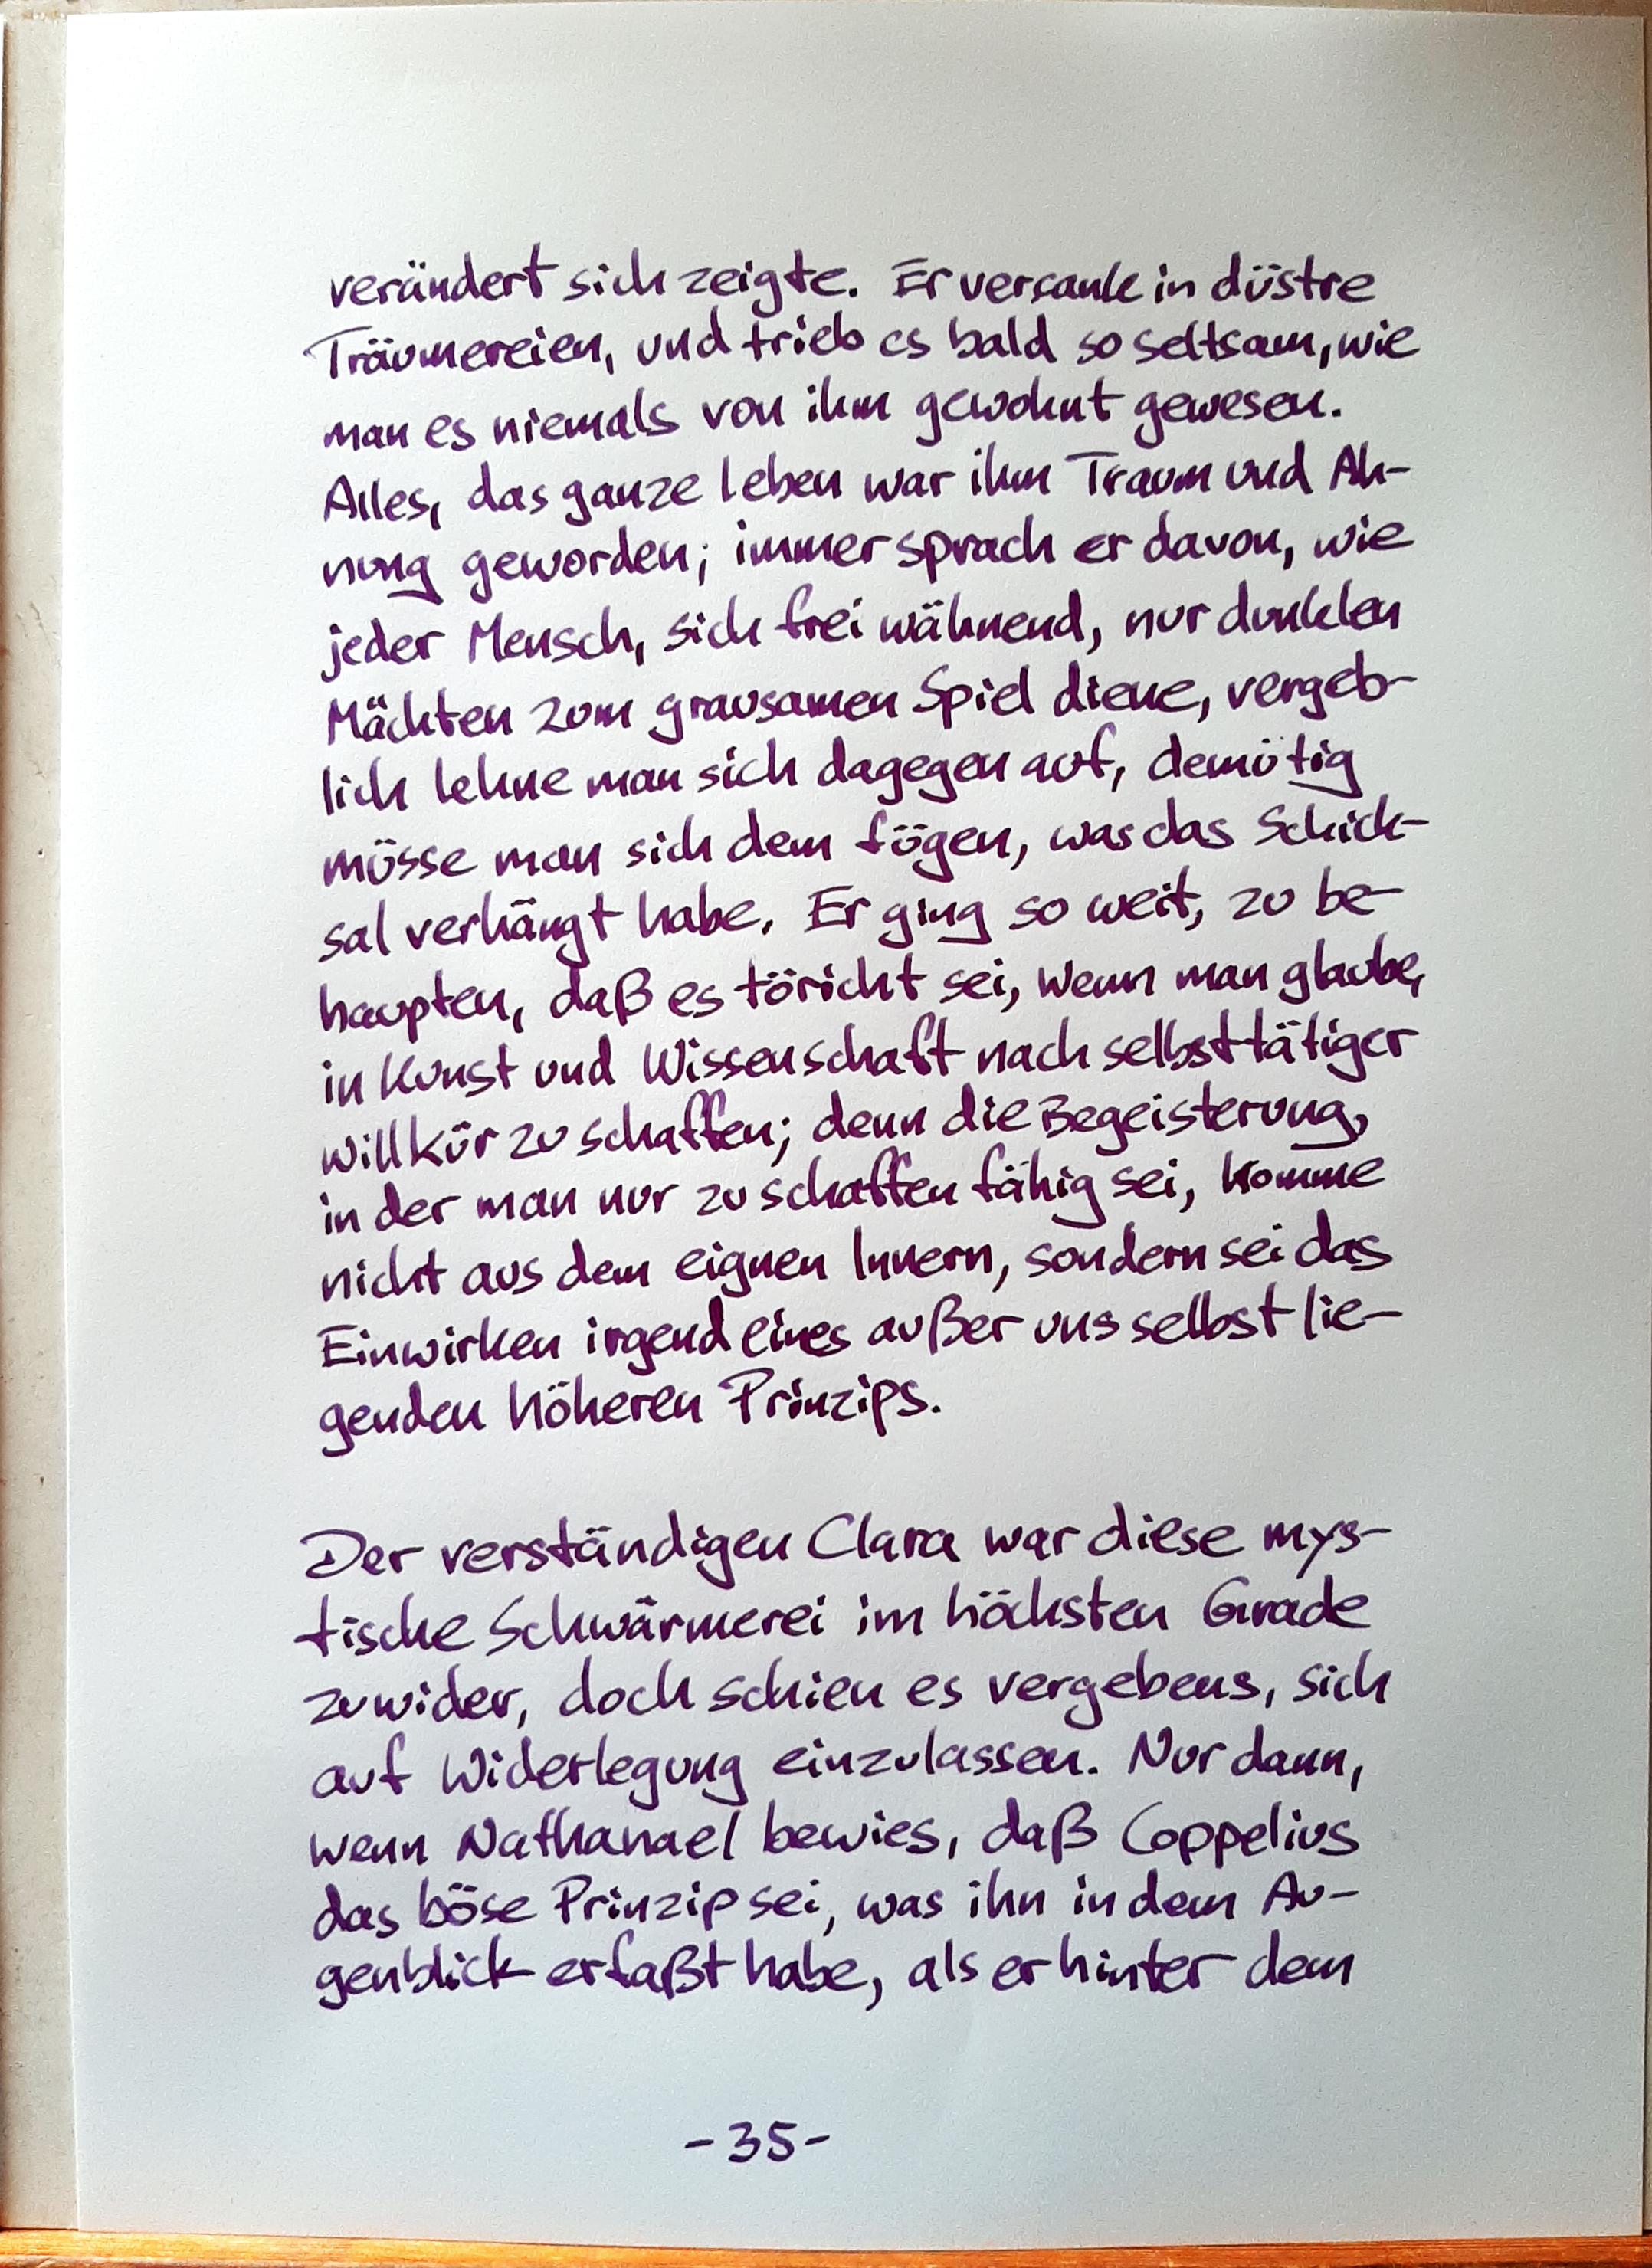 verändert sich zeigte. Er versank in düstre
Träumereien, und trieb es bald so seltsam, wie
man es niemals von ihm gewohnt gewesen.
Alles, das ganze Leben war ihm Traum und Ah-
nung geworden; immer sprach er davon, wie
jeder Mensch, sich frei wähnend, nur dunklen
Mächten zum grausamen Spiel diene, vergeb-
lich lehne man sich dagegen auf, demütig
müsse man sich dem fügen, was das Schick-
sal verhängt habe. Er ging so weit, zu be-
haupten, daß es töricht sei, wenn man glaube,
in Kunst und Wissenschaft nach selbsttätiger
Willkür zu schaffen; denn die Begeisterung,
in der man nur zu schaffen fähig sei, komme
nicht aus dem eignen Innern, sondern sei das
Einwirken irgend eines außer uns selbst lie-
genden höheren Prinzips.
Der verständigen Clara war diese mys-
tische Schwärmerei im höchsten Grade
zuwider, doch schien es vergebens, sich
auf Widerlegung einzulassen. Nur dann,
wenn Nathanael bewies, daß Coppelius
das böse Prinzip sei, was ihn in dem Au-
genblick erfaßt habe, als er hinter dem
-35-